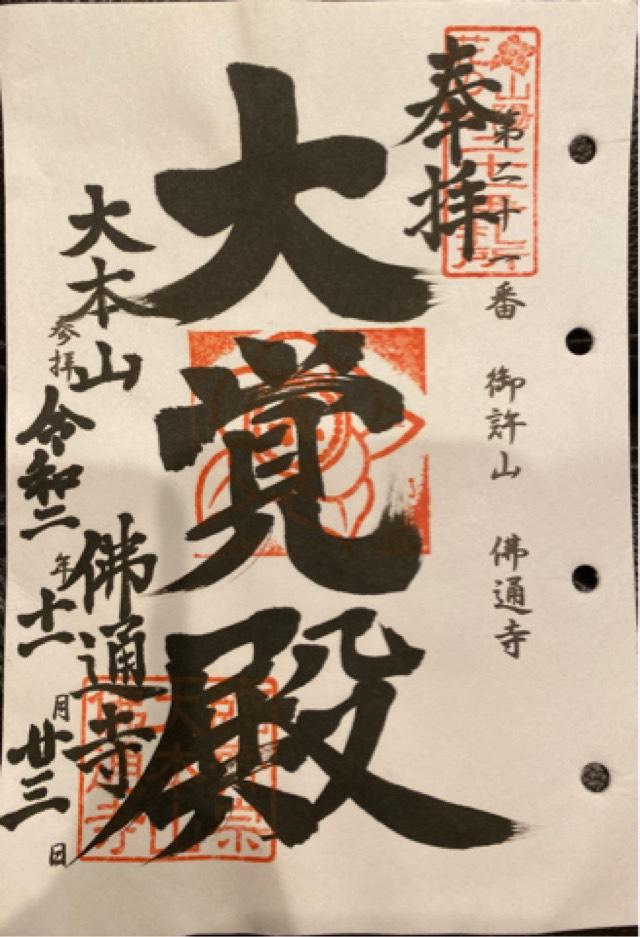 奉拝
第二十一番 御許山 佛通寺
大覚殿
大本山 佛通寺
参拝 令和二年十一月廿三日